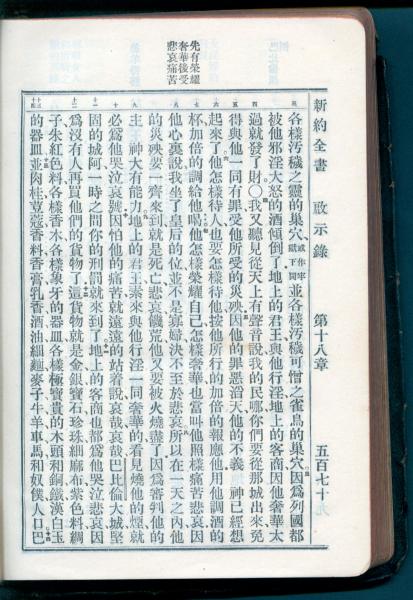 新約全書 啟示錄 第十八章 五百七十九
先有榮耀
奢華後受
悲哀痛苦
各樣汚穢之靈的巢穴或作牢獄下同並各樣汚穢可憎之雀鳥的巢穴因為列國都
被他邪淫大怒的酒傾倒了地上的君王與他行淫地上的客商因他奢華太
過就發了財○我又聽見從天上有聲音說我的民哪你們要從那城出來免
得與他一同有罪受他所受的災殃因他的罪惡滔天他的不義神已經想
起來了他怎樣待人也要怎樣待他按他所行的加倍的報應他用他調酒的
杯加倍的調給他喝他怎樣榮耀自己怎樣奢華也當叫他照樣痛苦悲哀因
他心裏說我坐了皇后的位並不是寡婦決不至於悲哀所以在一天之內他
的災殃要一齊來到就是死亡悲哀饑荒他又要被火燒盡了因為審判他的
主神大有能力地上的君王素來與他行淫一同奢華的看見燒他的煙就
必為他哭泣哀號因怕他的痛苦就遠遠的站着說哀哉哀哉巴比倫大城堅
固的城阿一時之間你的刑罰就來到了地上的客商也都為他哭泣悲哀因
為沒有人再買他們的貨物了這貨物就是金銀寶石珍珠細麻布紫色料綢
子朱紅色料各樣香木各樣象牙的器皿各樣極寶貴的木頭和銅鐵漢白玉
的器皿並肉桂荳蔻香料香膏乳香酒油細麵麥子牛羊車馬和奴僕人口巴